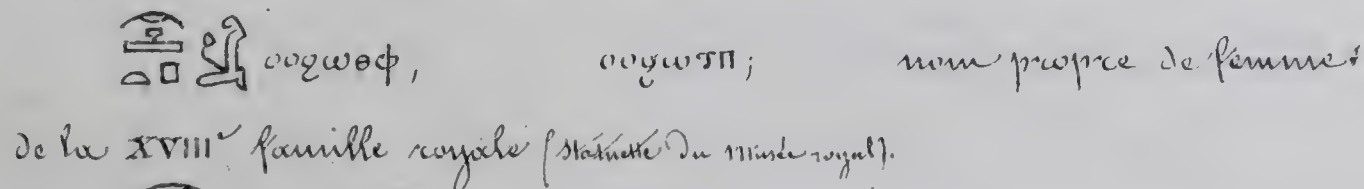 ⲟⲩϩⲱⲑⲫ, ⲟⲩϩⲱⲧⲡ; nom propre de femme:
de la XVIIIᵉ famille royale (statuette du musée royal).